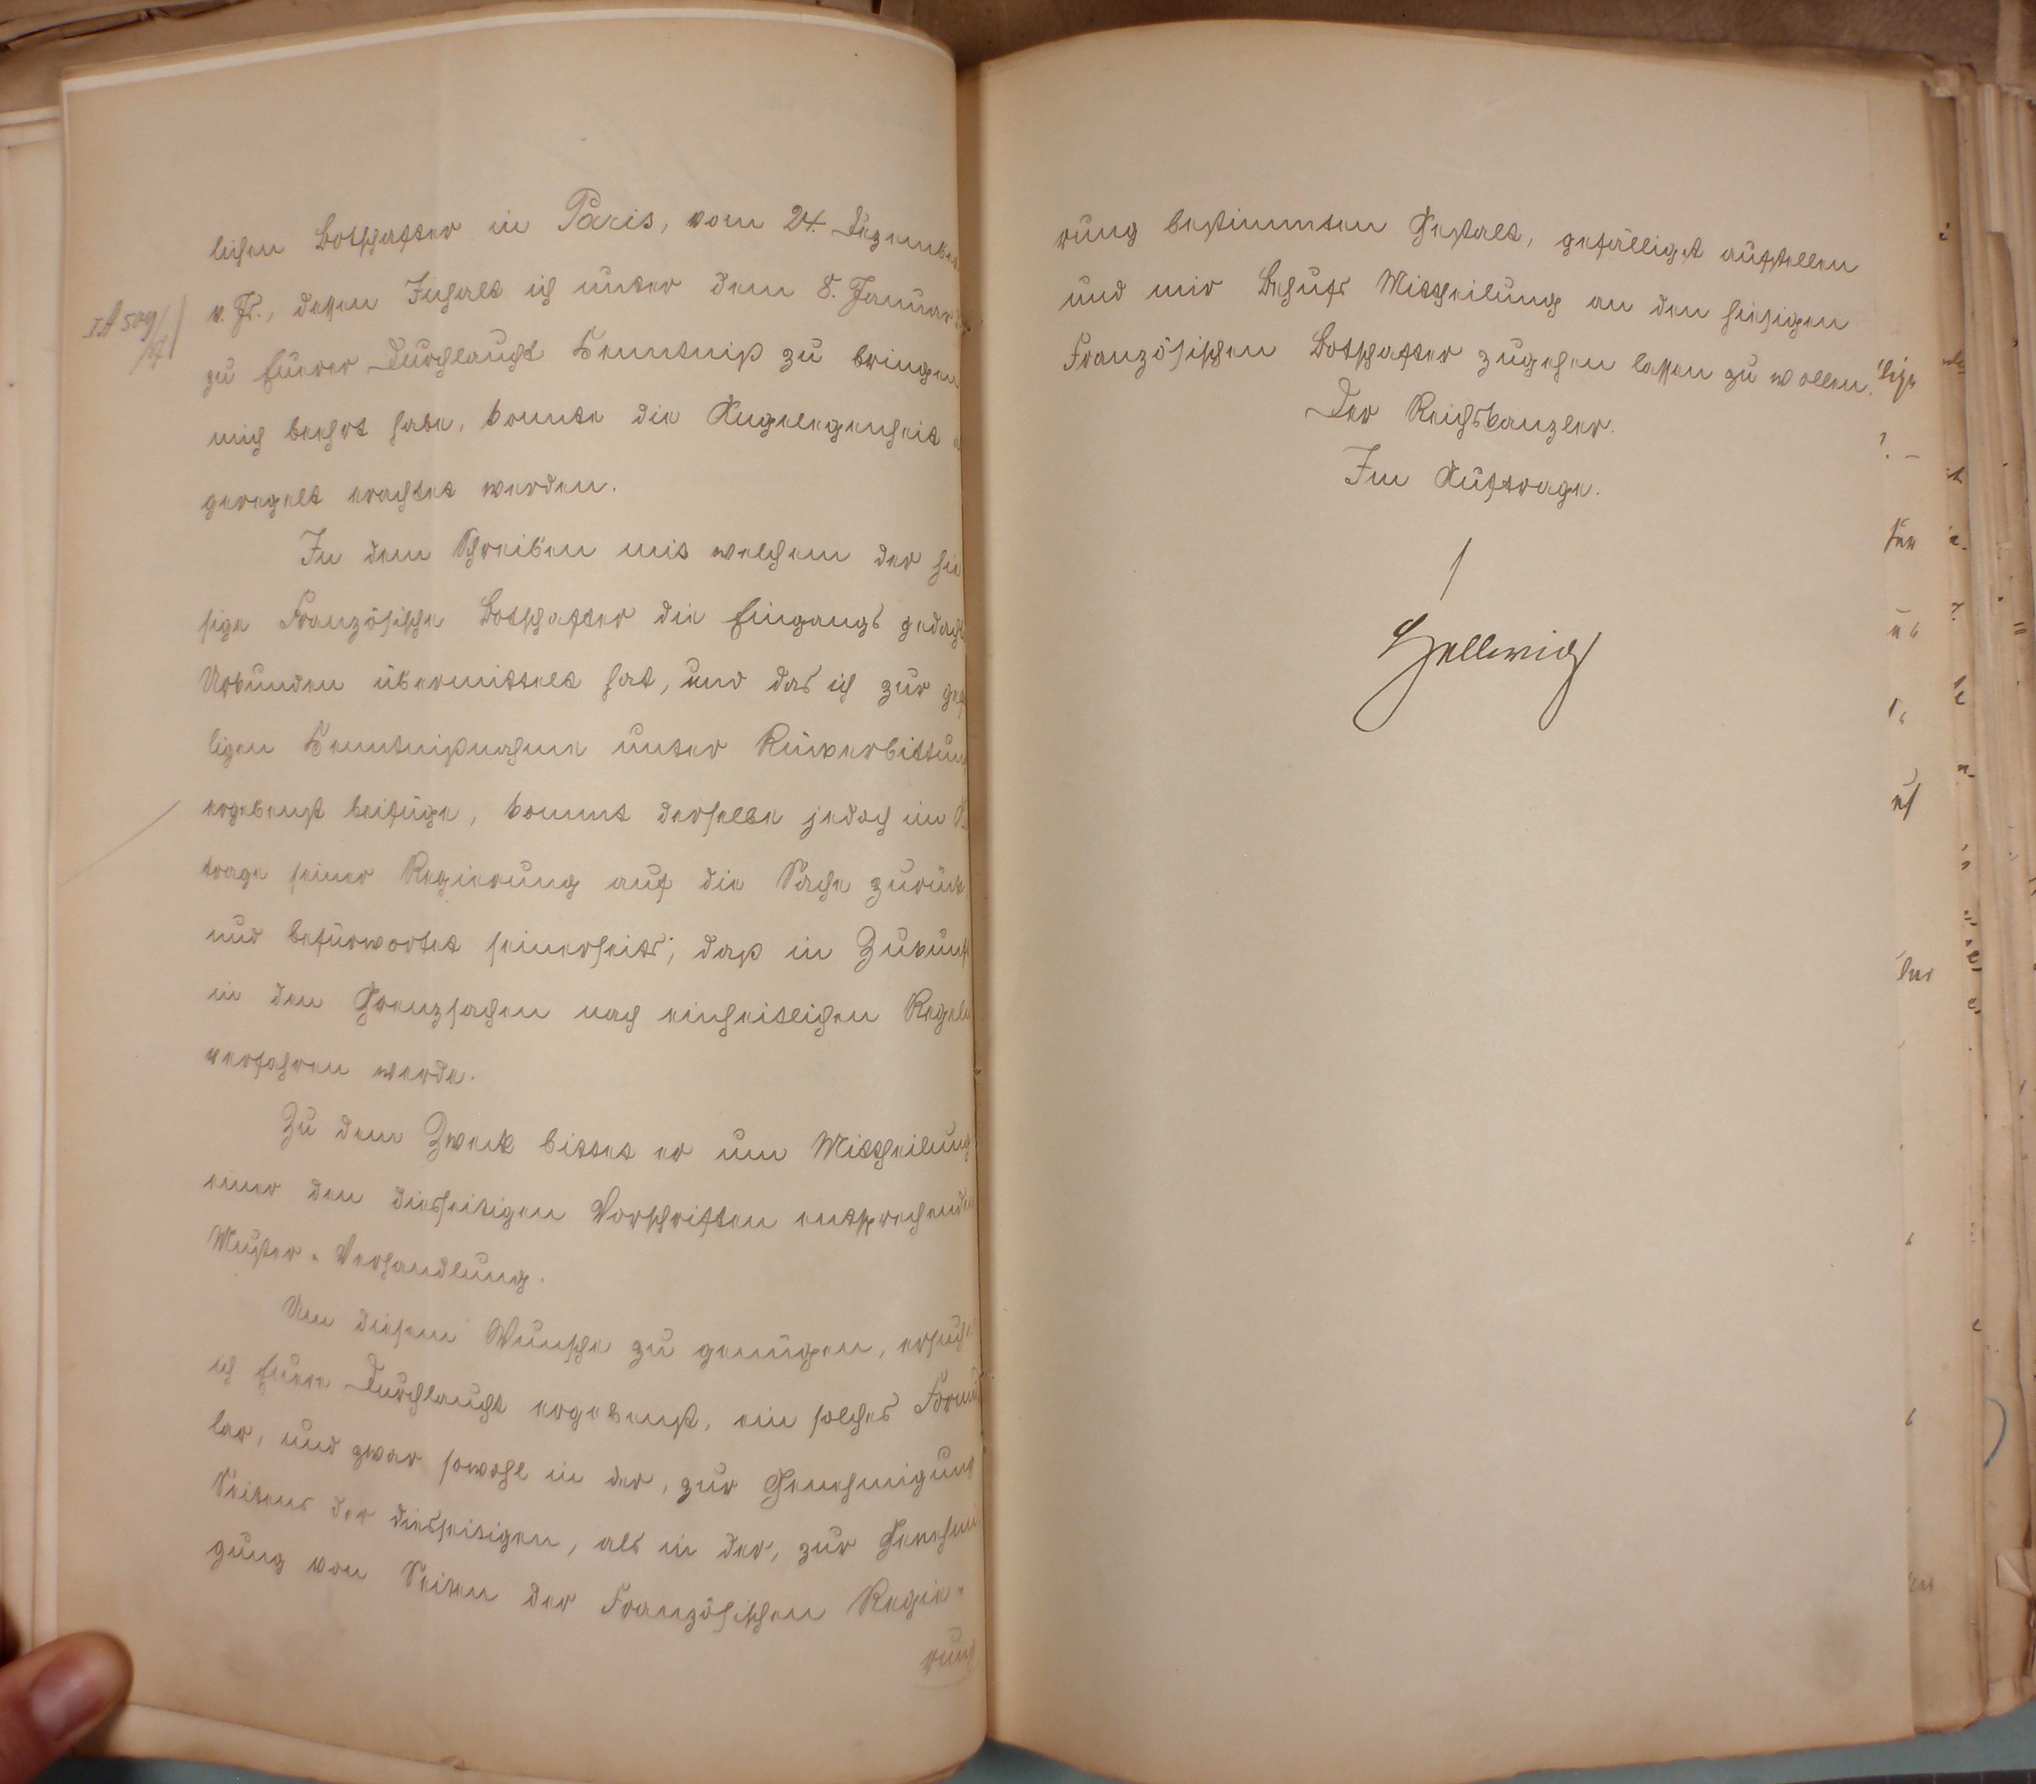 lichen Botschafter in Paris, vom 24. Dezember
v. Js., dessen Inhalt ich unter dem 8. Januar
IA 509
zu Euerer Durchlaucht Kenntniß zu bringen
mich beehrt habe, konnte die Angelegenheit
geregelt erachtet werden.
In dem Schreiben mit welchem der hie
sige Französische Botschafter die Eingangs gedach
Urkunden übermittelt hat, und das ich zur gef
ligen Kenntnißnahme unter Rückerbittung
ergebenst beifüge, kommt derselbe jedoch im
trage seiner Regierung auf die Sache zurück
und befürwortet seinerseits, daß in Zukunft
in den Grenzsachen nach einheitlichen Regeln
verfahren werde.
Zu dem Zweck bittet er um Mittheilung
einer den diesseitigen Vorschriften entsprechenden
Muster-Verhandlung.
Um diesem Wunsche zu genügen, ersuche
ich Euere Durchlaucht ergebenst, ein solches Formu
lar, und zwar sowohl in der, zur Genehmigung
Seitens der diesseitigen, als in der, zur Genehmi
gung von Seiten der Französischen Regie-
rung
rung bestimmten Gestalt, gefälligst aufstellen
und mir Behufs Mittheilung an den hiesigen
Französischen Botschafter zugehen lassen zu wollen.
Der Reichskanzler.
Im Auftrage.
Hellwig